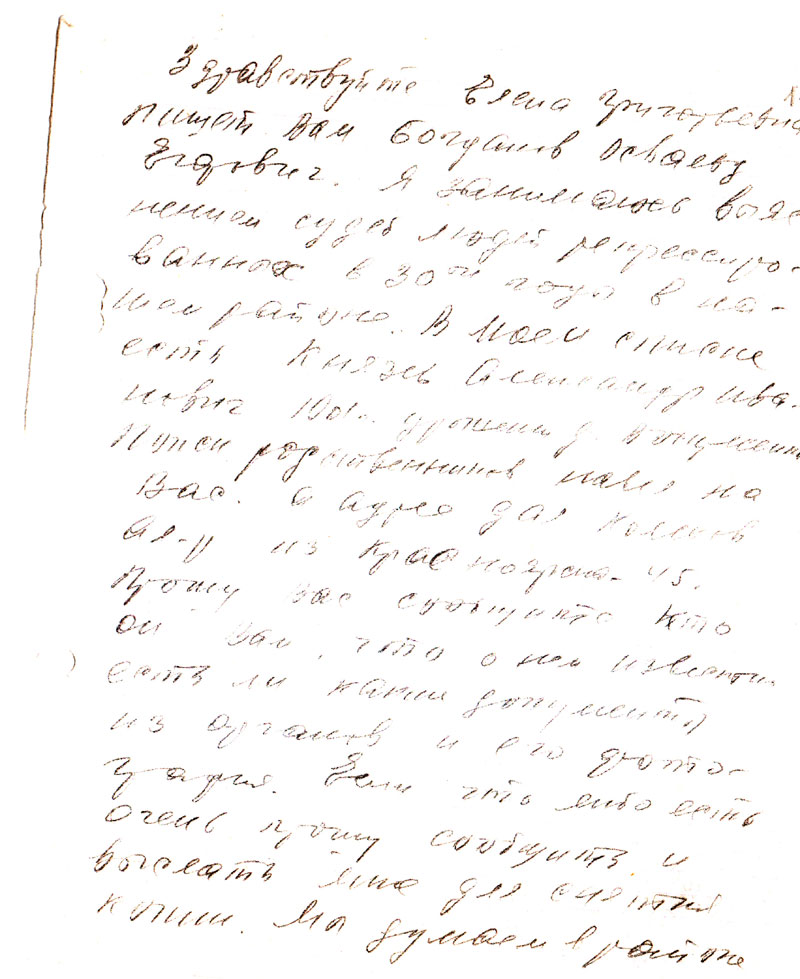 Здравствуйте Елена Григорьевна
пишет Вам Богданов Освальд
Я занимаюсь выяс
нением судеб людей репрессиро-
ванных в 30ые годы в на-
шем районе. В моем списке
есть Князев Александр Ива
нович 1901г. урожен. д.
родственников на
Вас. а адрес дал
Ал-р из Красноярска-45.
Прошу Вас сообщите кто
он Вам, что о нем известно
есть ли какие документы
из органов и его фото-
графия. Если что либо есть
очень прошу сообщить и
выслать мне для снятия
копии. Мы думаем в районе